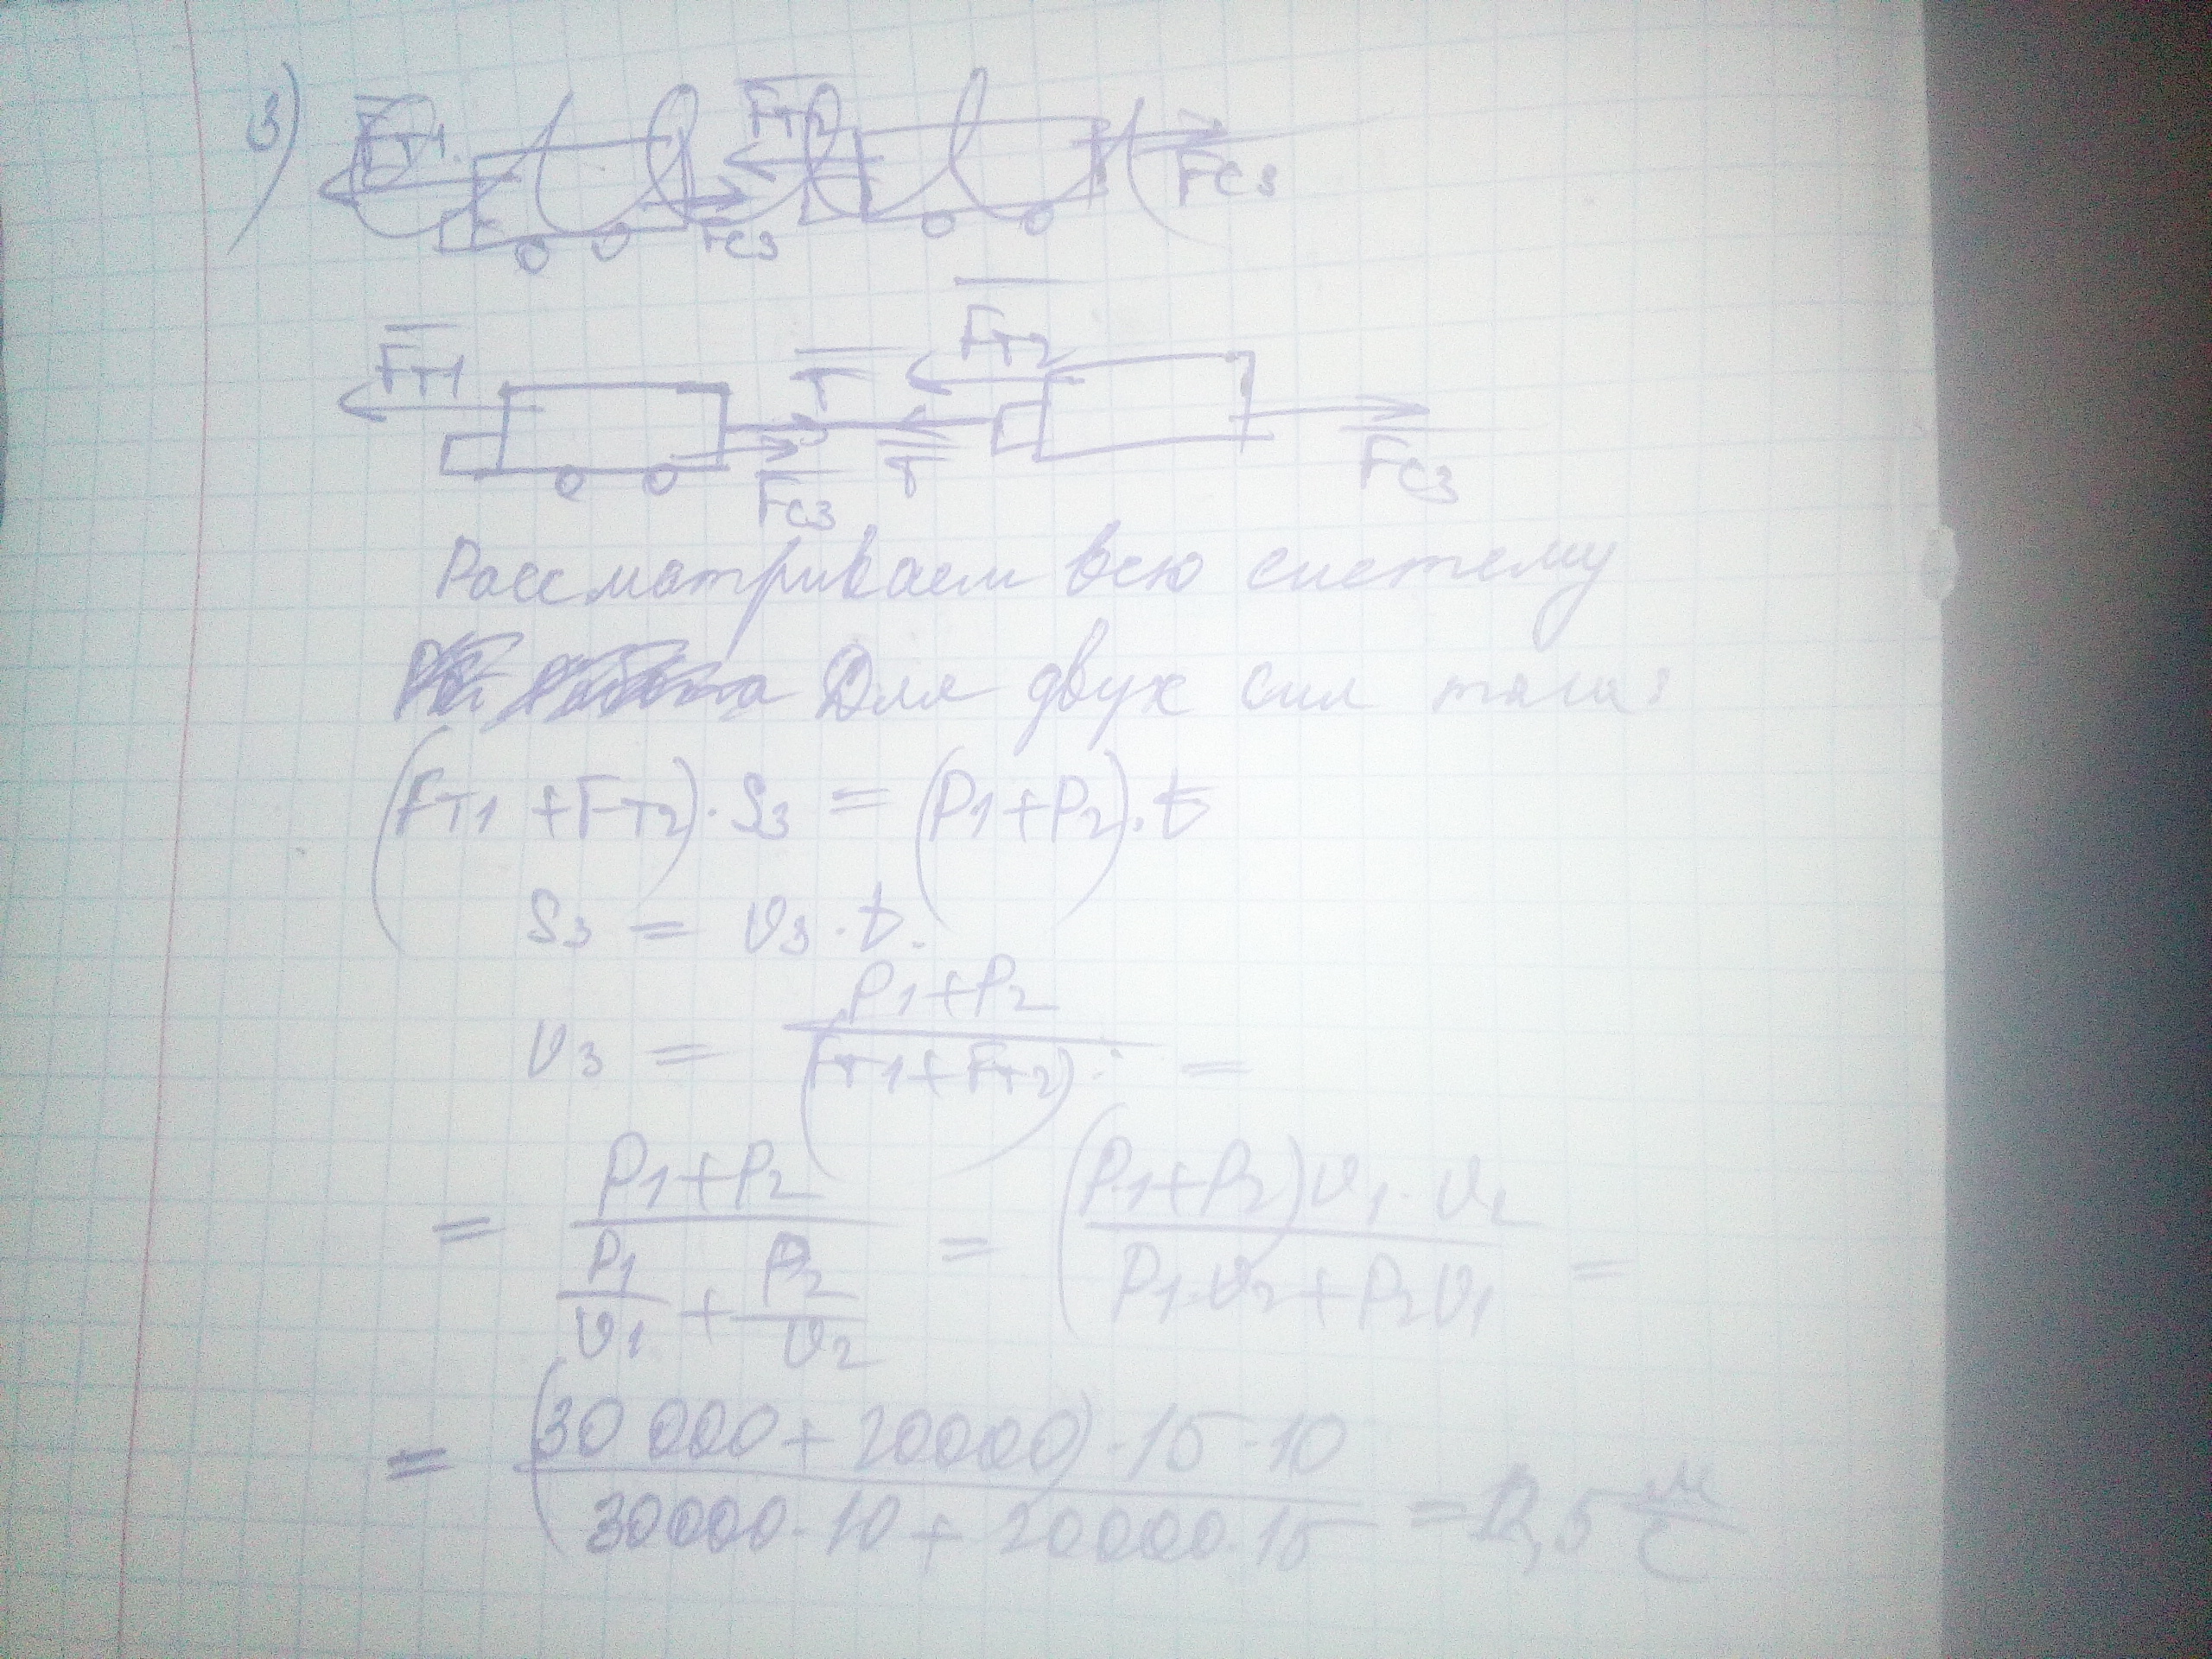 3)
F_T1 F_T2 F_C3
F_C3
F_T1 T F_T2
F_C3 T F_C3
Рассматриваем всю систему
Для двух сил тяги:
(F_T1 + F_T2) · S_3 = (P_1 + P_2) · t
S_3 = v_3 · t.
v_3 = (P_1 + P_2) / (F_T1 + F_T2) =
= (P_1 + P_2) / (P_1/v_1 + P_2/v_2) = (P_1 + P_2) v_1 · v_2 / (P_1 v_2 + P_2 v_1) =
= (30 000 + 20000) · 15 · 10 / (30000 · 10 + 20000 · 15) = 12,5 м/с